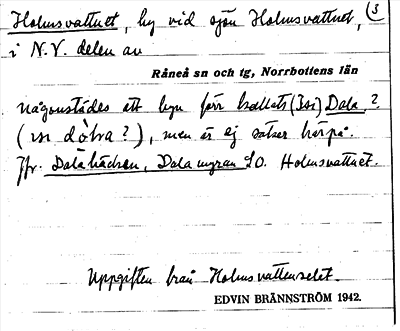 Holmsvattnet, by vid sjön Holmsvattnet, 3
i N.V. delen av
Råneå sn och tg, Norrbottens län
någonstädes att byn förr kallats (ɜsɩ) Dala ?
( dòlva ? ), men är ej säker härpå.
Jfr. Dalabäcken, Dalamyran SO. Holmsvattnet.
Uppgiften från Holmsvattenselet.
EDVIN BRÄNNSTRÖM 1942.